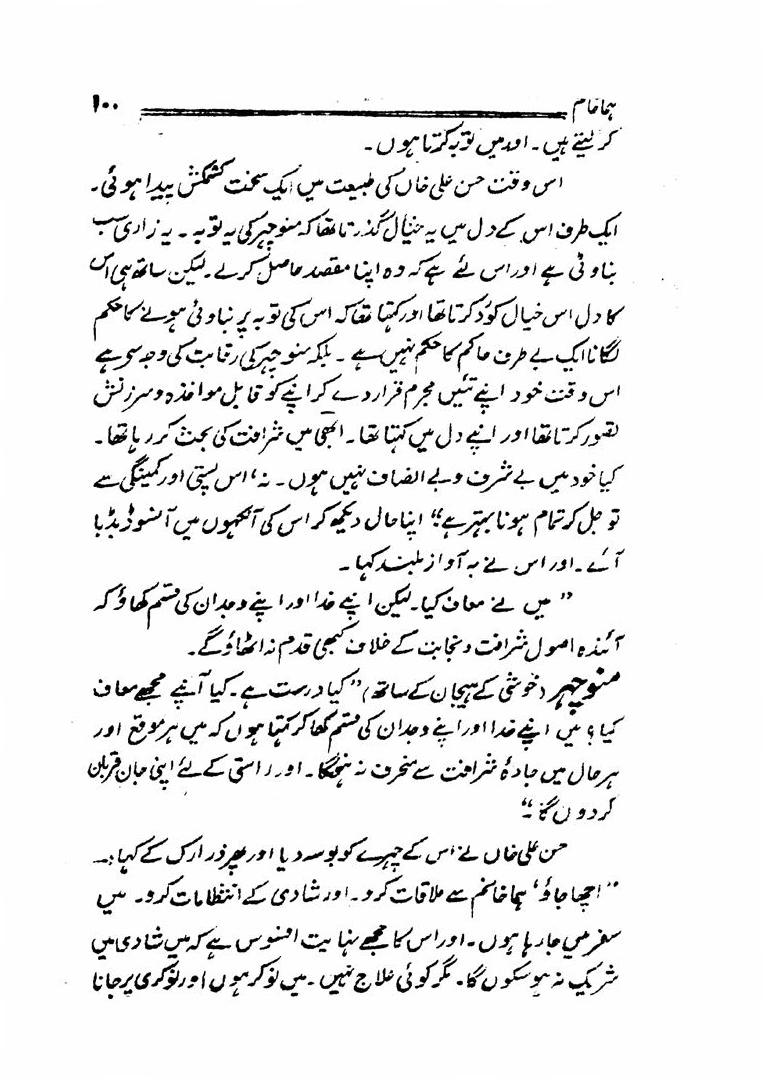 ہما خانم ۱۰۰
کر لیتے ہیں۔ اور میں توبہ کرتا ہوں۔
اس وقت حسن علی خاں کی طبیعت میں ایک سخت کشمکش پیدا ہوئی۔
ایک طرف اس کے دل میں یہ خیال گذرتا تھا کہ منوچہر کی یہ توبہ ۔ یہ زاری سب
بناوٹی ہے اور اس لئے ہے کہ وہ اپنا مقصد حاصل کرلے۔ لیکن ساتھ ہی اس
کا دل اس خیال کو رد کرتا تھا اور کہتا تھا کہ اس کی توبہ پر بناوٹی ہونے کا حکم
لگانا ایک بے طرف حاکم کا حکم نہیں ہے ۔ بلکہ منوچہر کی رقابت کی وجہ سے ہے
اس وقت خود اپنے تئیں مجرم قرار دے کر اپنے کو قابل مواخذہ و سرزنش
تصور کرتا تھا اور اپنے دل میں کہتا تھا ۔ ابھی میں شرافت کی بحث کر رہا تھا ۔
کیا خود میں بے شرف و بے انصاف نہیں ہوں ۔ نہ، اس پستی اور کمینگی سے
تو جل کر تمام ہونا بہتر ہے“ اپنا حال دیکھ کر اس کی آنکھوں میں آنسو ڈبڈبا
آئے ۔ اور اس نے بہ آواز بلند کہا ۔
”میں نے معاف کیا۔ لیکن اپنے خدا اور اپنے وجدان کی قسم کھاؤ کہ
آئندہ اصول شرافت و نجابت کے خلاف کبھی قدم نہ اٹھاؤ گے۔
منوچہر (خوشی کے ہیجان کے ساتھ) ”کیا درست ہے۔ کیا آپنے مجھے معاف
کیا؟ میں اپنے خدا اور اپنے وجدان کی قسم کھا کر کہتا ہوں کہ میں ہر موقع اور
ہر حال میں جادۂ شرافت سے منحرف نہ ہونگا ۔ اور راستی کے لئے اپنی جان قربان
کر دوں گا۔“
حسن علی خاں نے اس کے چہرے کو بوسہ دیا اور پھر ذرا رک کے کہا :۔
”اچھا جاؤ، ہما خانم سے ملاقات کرو ۔ اور شادی کے انتظامات کرو۔ میں
سفر میں جا رہا ہوں ۔ اور اس کا مجھے نہایت افسوس ہے کہ میں شادی میں
شریک نہ ہو سکوں گا۔ مگر کوئی علاج نہیں ۔ میں نوکر ہوں اور نوکری پر جانا